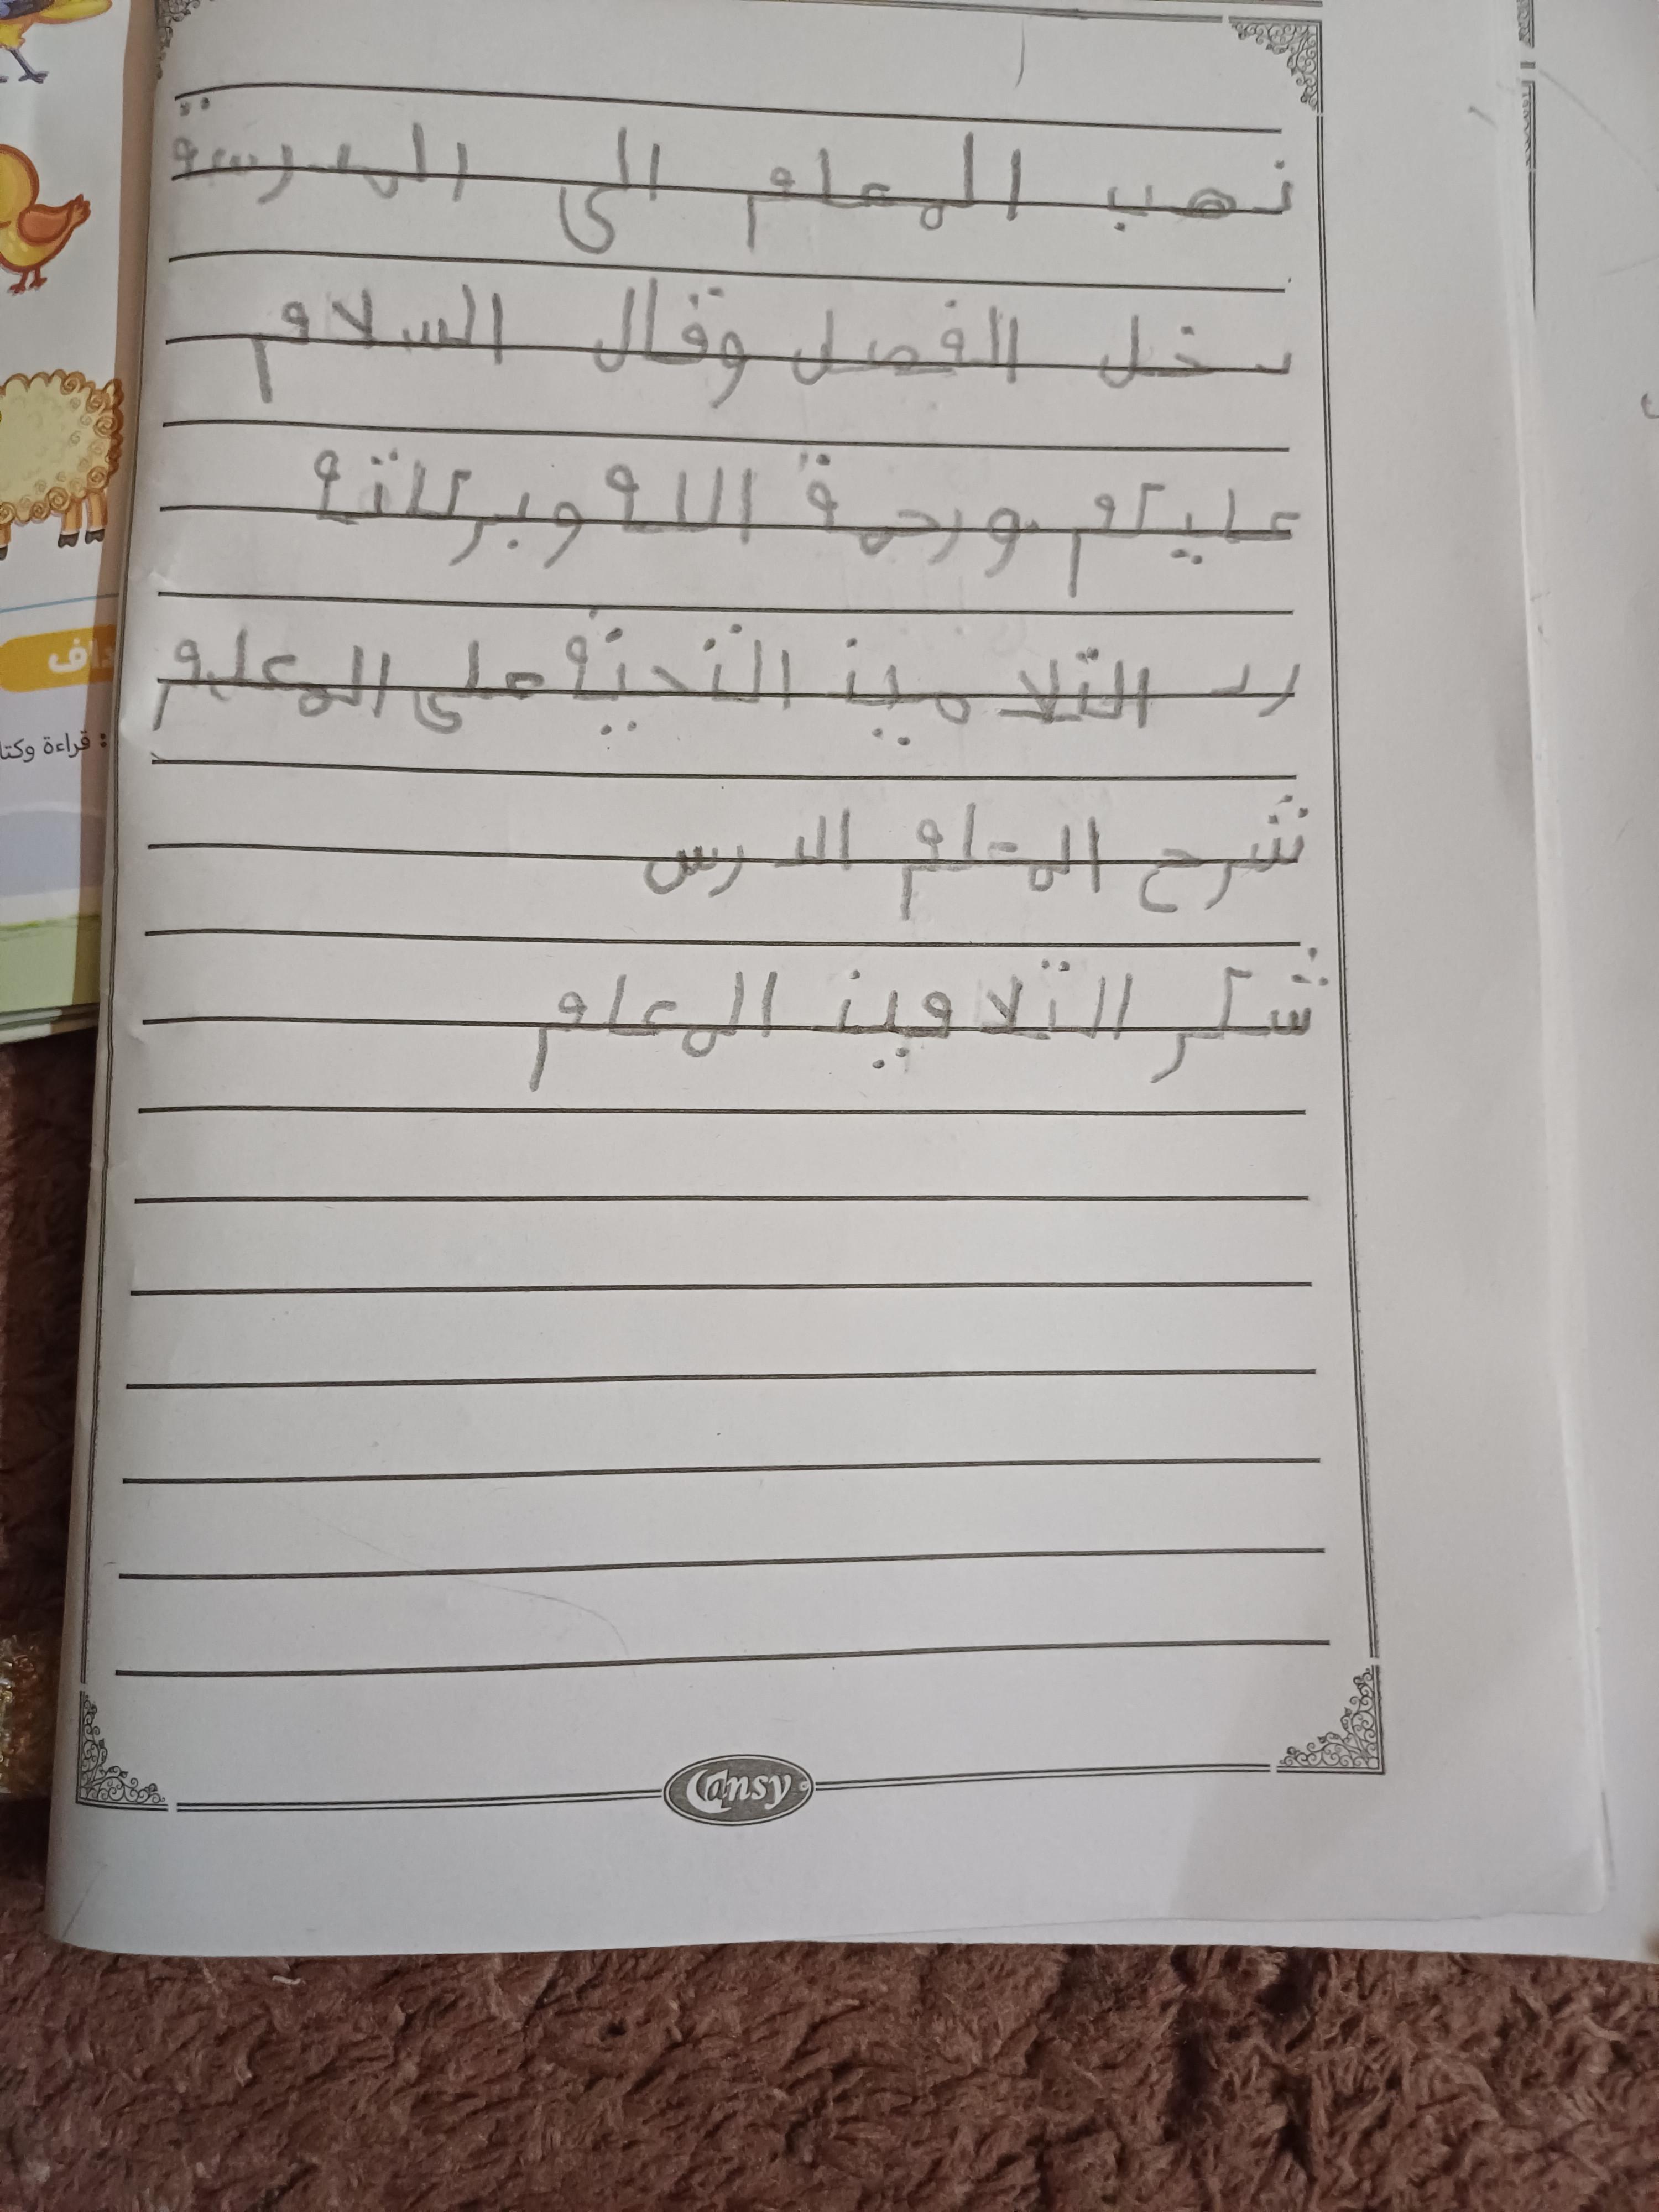 ذهب المعلم الى المدرسة
دخل الفصل وقال السلام
عليكم ورحمة الله وبركاتة
رد التلاميذ التحية على المعلم
شرح المعلم الدرس
شكر التلاميذ المعلم
داف
: قراءة وكتا
Cansy